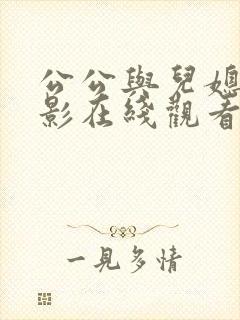 公公與兒媳
影在綫觀看
一見多情